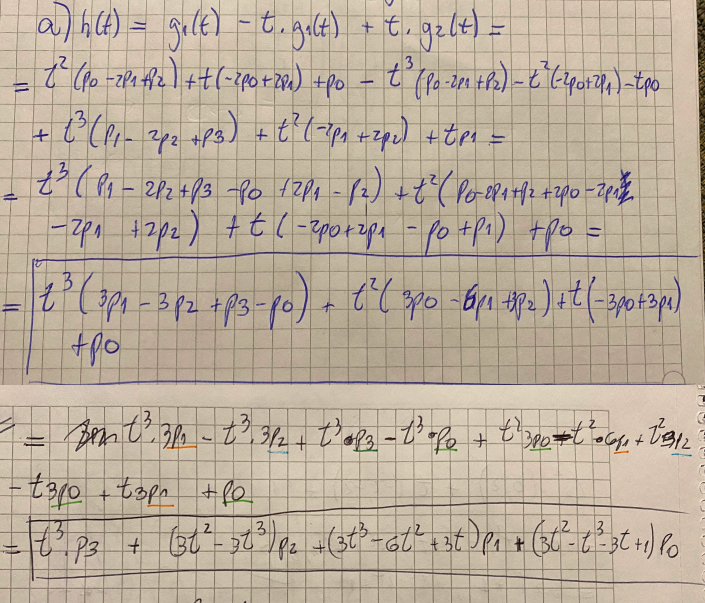 a) h(t) = g1(t) - t.g1(t) + t.g2(t) =
= t²(p0-2p1+p2)+t(-2p0+2p1)+p0 - t³(p0-2p1+p2)-t²(-2p0+2p1)-tp0
+ t³(p1-2p2+p3) + t²(-2p1+2p2) + tp1 =
= t³(p1-2p2+p3-p0+2p1-p2) + t²(p0-2p1+p2+2p0-2p1
-2p1 +2p2) + t(-2p0+2p1 -p0+p1) +p0 =
= t³(3p1-3p2+p3-p0) + t²(3p0-6p1+3p2)+t(-3p0+3p1)
+p0
= t³.3p1 - t³.3p2 + t³•p3 - t³•p0 + t²3p0 - t²•6p1 + t²3p2
- t3p0 + t3p1 + p0
= t³.p3 + (3t²-3t³)p2 +(3t³-6t²+3t)p1 + (3t²-t³-3t+1)p0